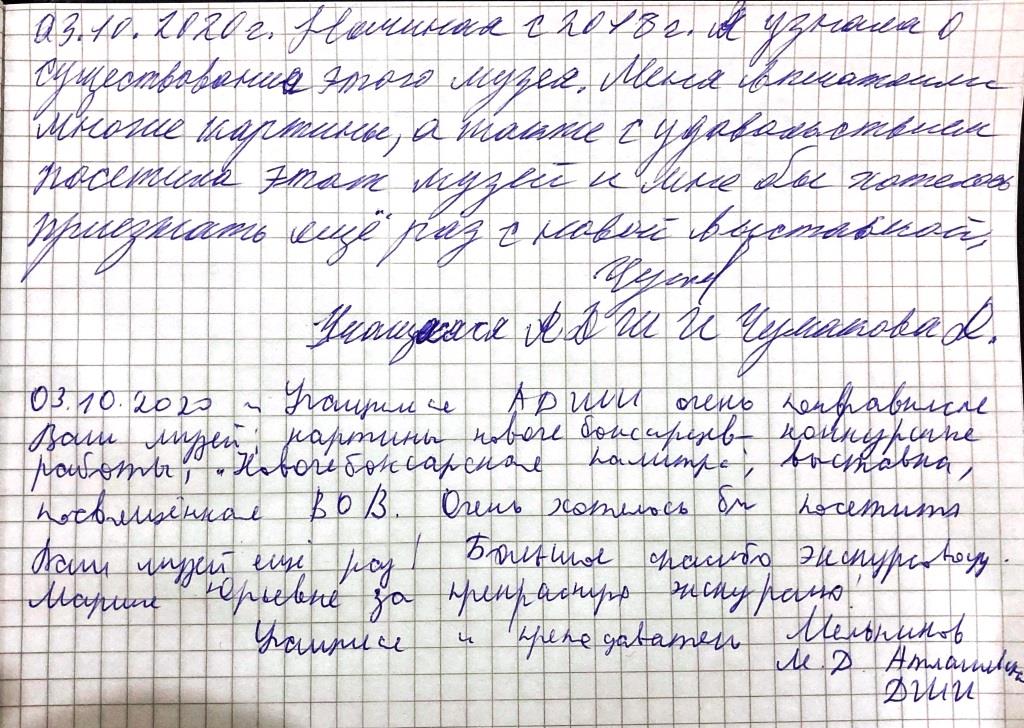 03.10.2020г. Начиная с 2018г. Я узнала о
существование этого музея. Меня впечатлили
многие картины, а также с удовольствием
посетила этот музей и мне бы хотелось
приезжать ещё раз с новой выставкой,
Учащаяся АДШИ Чумакова А.
03.10.2020 Учащимся АДШИ очень понравился
Ваш музей; картины новочебоксарцев- конкурсные
работы, "Новочебоксарская палитра", выставка,
посвящённая ВОВ. Очень хотелось бы посетить
Ваш музей ещё раз! Большое спасибо экскурсоводу
Марине Юрьевне за прекрасную экскурсию!
Учащиеся и преподаватель Мельников
М.Д. Атлашевская
ДШИ